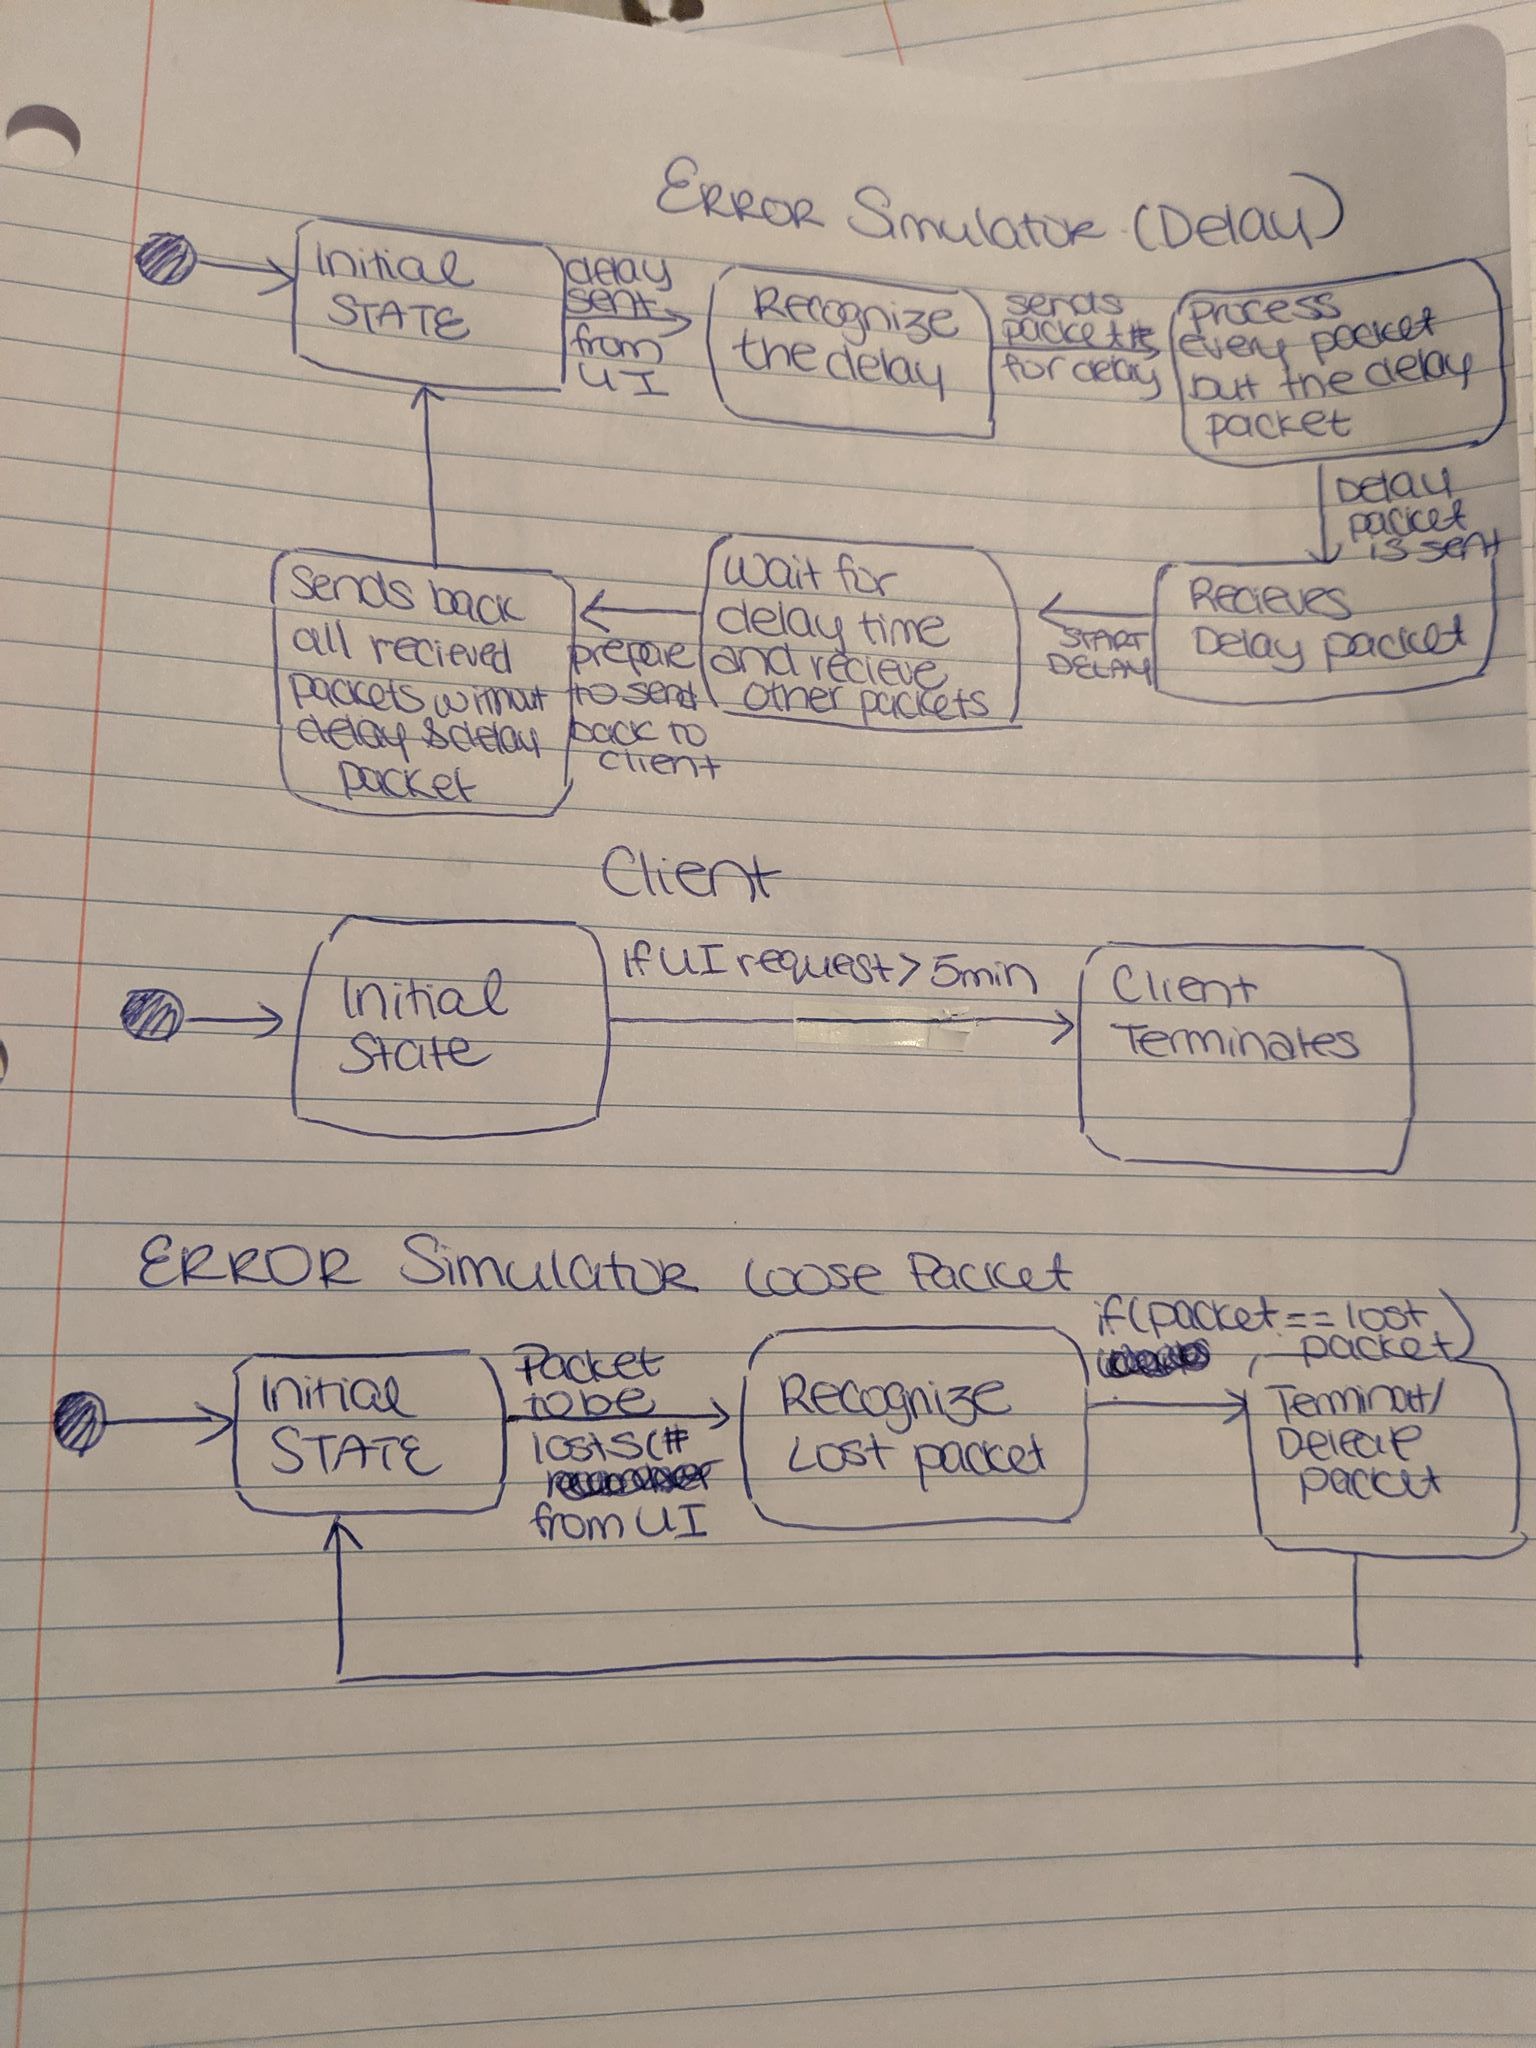 ERROR Simulator (Delay)
Initial
STATE
delay
sent
from
UI
Recognize
the delay
sends
packet #
for delay
Process
every packet
but the delay
packet
Delay
packet
is sent
Recieves
Delay packet
START
DELAY
Wait for
delay time
and recieve
other packets
prepare
to send
back to
client
Sends back
all recieved
packets without
delay & delay
packet
Client
Initial
State
if UI request > 5min
Client
Terminates
ERROR Simulator Loose Packet
Initial
STATE
Packet
to be
lost
from UI
Recognize
Lost packet
if(packet == lost
packet)
packet